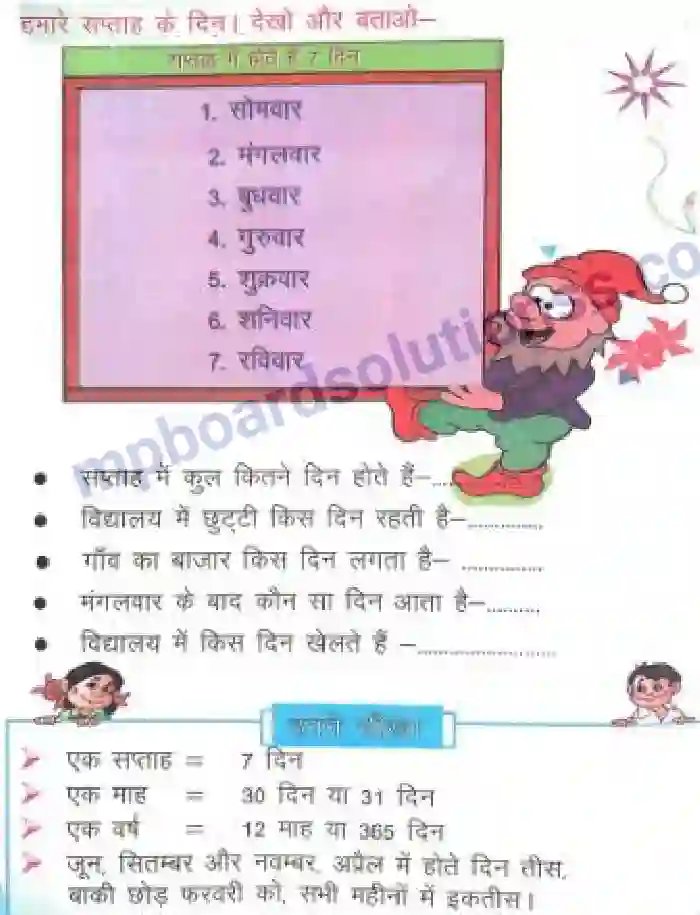 हमारे सप्ताह के दिन। देखो और बताओ—
सप्ताह में होते हैं 7 दिन
1. सोमवार
2. मंगलवार
3. बुधवार
4. गुरुवार
5. शुक्रवार
6. शनिवार
7. रविवार
mpboardsolutions.co
• सप्ताह में कुल कितने दिन होते हैं—....
• विद्यालय में छुट्टी किस दिन रहती है—..............
• गाँव का बाजार किस दिन लगता है— ...............
• मंगलवार के बाद कौन सा दिन आता है—..........
• विद्यालय में किस दिन खेलते हैं —.........................
एक सप्ताह = 7 दिन
एक माह = 30 दिन या 31 दिन
एक वर्ष = 12 माह या 365 दिन
जून, सितम्बर और नवम्बर, अप्रैल में होते दिन तीस,
बाकी छोड़ फरवरी को, सभी महीनों में इकतीस।